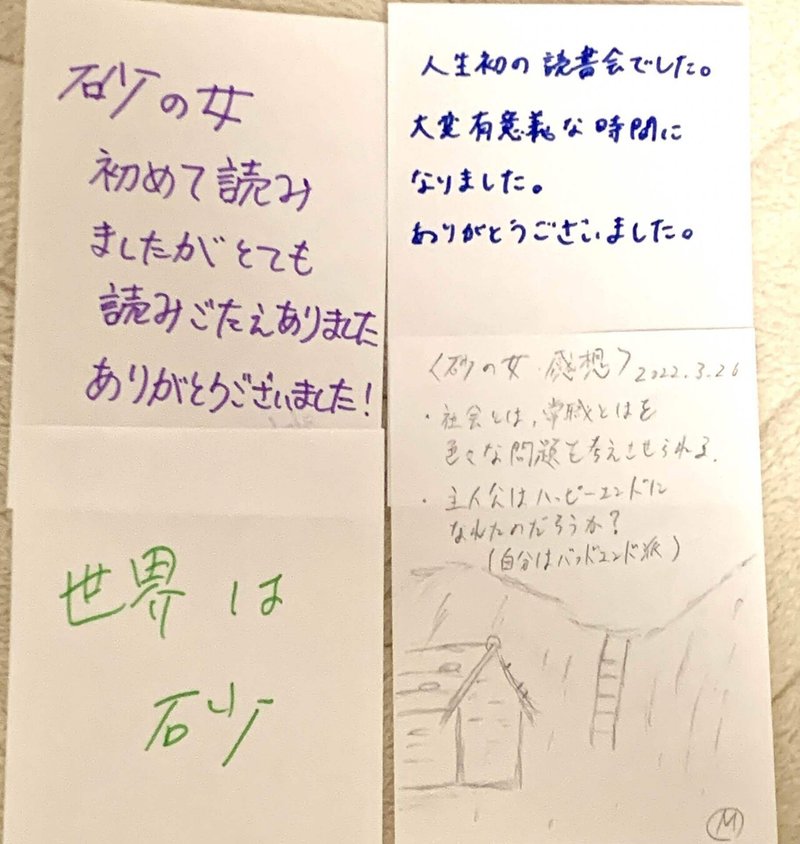 砂の女
初めて読み
ましたがとても
読みごたえありました
ありがとうございました!
人生初の読書会でした。
大変有意義な時間に
なりました。
ありがとうございました。
世界は
砂
〈砂の女 感想〉2022.3.26
・社会とは、常職とはを
色々な問題を考えさせられる。
・主人公はハッピーエンドに
なれたのだろうか?
(自分はバッドエンド派)
M